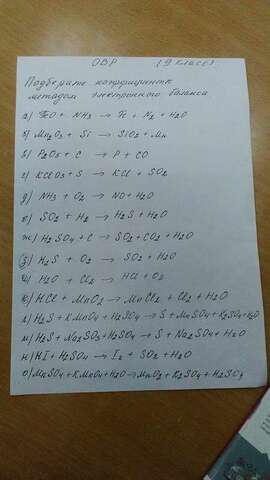 ОВР (9 класс)
Подберите коэффициенты
методом электронного баланса
а) FeO + NH3 → Fe + N2 + H2O
б) Mn2O3 + Si → SiO2 + Mn
в) P2O5 + C → P + CO
г) KClO3 + S → KCl + SO2
д) NH3 + O2 → NO + H2O
е) SO2 + H2 → H2S + H2O
ж) H2SO4 + C → SO2 + CO2 + H2O
з) H2S + O2 → SO2 + H2O
и) H2O + Cl2 → HCl + O2
к) HCl + MnO2 → MnCl2 + Cl2 + H2O
л) H2S + KMnO4 + H2SO4 → S + MnSO4 + K2SO4 + H2O
м) H2S + Na2SO3 + H2SO4 → S + Na2SO4 + H2O
н) HI + H2SO4 → I2 + SO2 + H2O
о) MnSO4 + KMnO4 + H2O → MnO2 + K2SO4 + H2SO4